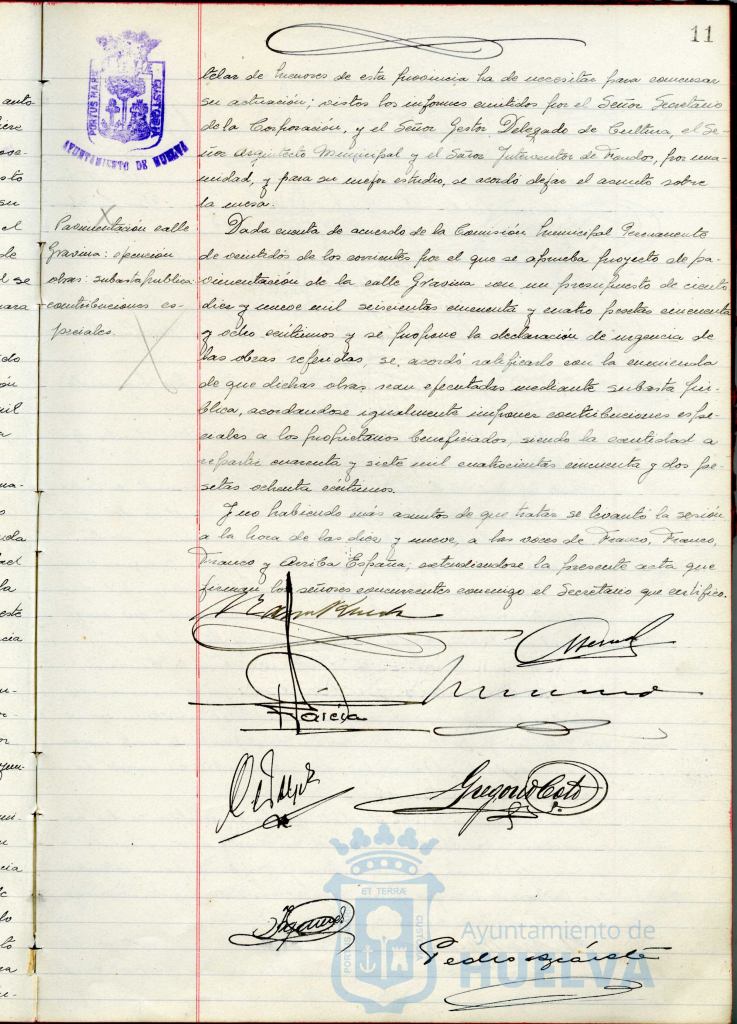 11
PORTUS MARIS
CUSTODIA
AYUNTAMIENTO DE HUELVA
telar de menores de esta provincia ha de necesitar para comenzar
su actuación; vistos los informes emitidos por el Señor Secretario
de la Corporación, y el Señor Gestor Delegado de Cultura, el Se-
ñor Arquitecto Municipal y el Señor Interventor de Fondos, por una-
nimidad, y para su mejor estudio, se acordó dejar el asunto sobre
la mesa.
Pavimentación calle
Gravina: ejecución
obras: subasta publica:
contribuciones es-
peciales.
Dada cuenta de acuerdo de la Comisión Municipal Permanente
de veintidos de los corrientes por el que se aprueba proyecto de pa-
vimentación de la calle Gravina con un presupuesto de ciento
diez y nueve mil seiscientas cincuenta y cuatro pesetas cincuenta
y ocho céntimos y se propone la declaración de urgencia de
las obras referidas, se acordó ratificarlo con la enmienda
de que dichas obras sean ejecutadas mediante subasta pú-
blica, acordandose igualmente imponer contribuciones espe-
ciales a los propietarios beneficiados, siendo la cantidad a
repartir cuarenta y siete mil cuatrocientas cincuenta y dos pe-
setas ochenta céntimos.
Y no habiendo más asuntos de que tratar se levantó la sesión
a la hora de las diez y nueve, a las voces de Franco, Franco,
Franco y Arriba España, extendiendose la presente acta que
firman los señores concurrentes conmigo el Secretario que certifico.
García
Gregorio Coto
Pedro
ET TERRÆ
PORTUS
CUSTODIA
Ayuntamiento de
HUELVA